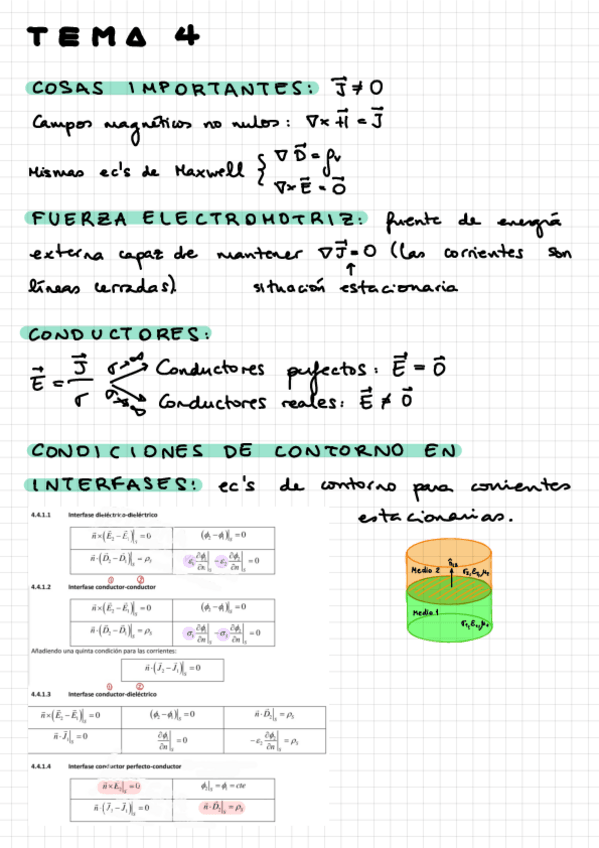 TEMA 4
COSAS IMPORTANTES: J⃗ ≠ 0
Campos magnéticos no nulos: ∇x H⃗ = J⃗
Mismas ec's de Maxwell { ∇ D⃗ = ρv
∇x E⃗ = 0⃗
FUERZA ELECTROMOTRIZ: fuente de energía
externa capaz de mantener ∇ J⃗ = 0 (las corrientes son
líneas cerradas). ↑ situación estacionaria
CONDUCTORES:
E⃗ = J⃗/σ σ→∞ Conductores perfectos: E⃗ = 0⃗
Conductores reales: E⃗ ≠ 0⃗
CONDICIONES DE CONTORNO EN
INTERFASES: ec's de contorno para corrientes
estacionarias.
4.4.1.1 Interfase dieléctrico-dieléctrico
n⃗×(E⃗₂ − E⃗₁)|ₛ = 0 (ϕ₂ − ϕ₁)|ₛ = 0
n⃗·(D⃗₂ − D⃗₁)|ₛ = ρₛ ε₁ ∂ϕ₁/∂n|ₛ − ε₂ ∂ϕ₂/∂n|ₛ = 0
① ②
4.4.1.2 Interfase conductor-conductor
n⃗×(E⃗₂ − E⃗₁)|ₛ = 0 (ϕ₂ − ϕ₁)|ₛ = 0
n⃗·(D⃗₂ − D⃗₁)|ₛ = ρₛ σ₁ ∂ϕ₁/∂n|ₛ − σ₂ ∂ϕ₂/∂n|ₛ = 0
Añadiendo una quinta condición para las corrientes:
n⃗·(J⃗₂ − J⃗₁)|ₛ = 0
① ②
4.4.1.3 Interfase conductor-dieléctrico
n⃗×(E⃗₂ − E⃗₁)|ₛ = 0 (ϕ₂ − ϕ₁)|ₛ = 0 n⃗·D⃗₂|ₛ = ρₛ
n⃗·J⃗₁|ₛ = 0 ∂ϕ₁/∂n|ₛ = 0 −ε₂ ∂ϕ₂/∂n|ₛ = ρₛ
4.4.1.4 Interfase conductor perfecto-conductor
n⃗×E⃗₂|ₛ = 0 ϕ₂|ₛ = ϕ₁ = cte
n⃗·(J⃗₂ − J⃗₁)|ₛ = 0 n⃗·D⃗₂|ₛ = ρₛ
n̂₁₂
Medio 2 σ₂, ε₂, μ₂
Medio 1 σ₁, ε₁, μ₁